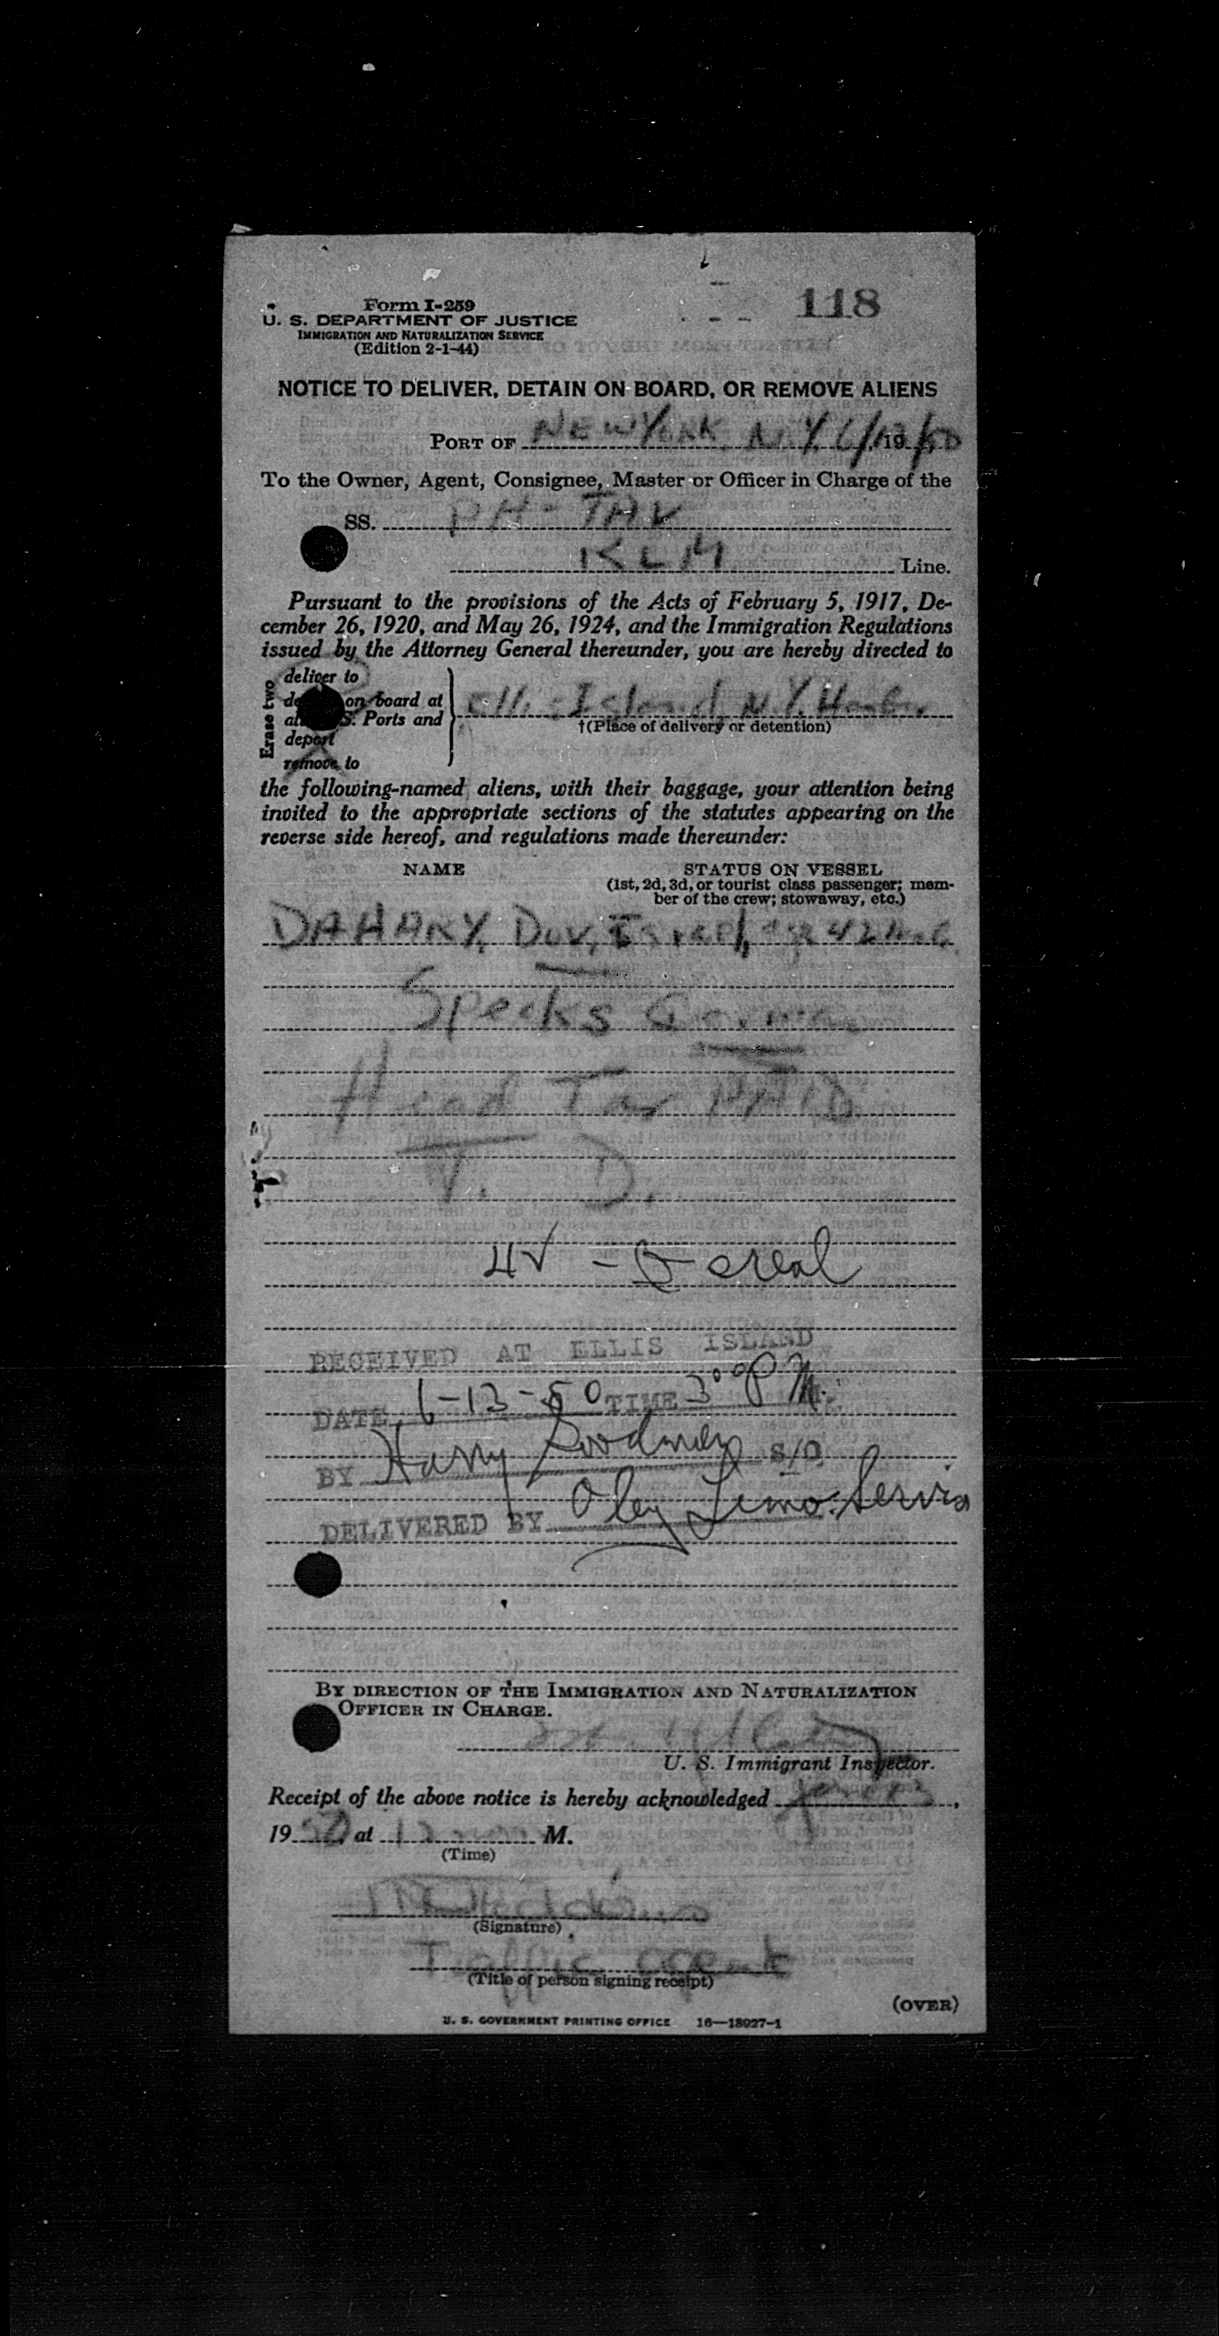 118
Form I-259
U. S. DEPARTMENT OF JUSTICE
IMMIGRATION AND NATURALIZATION SERVICE
(Edition 2-1-44)
NOTICE TO DELIVER, DETAIN ON BOARD, OR REMOVE ALIENS
PORT OF NEW YORK, N.Y. 6/13, 19/50
To the Owner, Agent, Consignee, Master or Officer in Charge of the
SS. PH-TAV
KLM Line.
Pursuant to the provisions of the Acts of February 5, 1917, De-
cember 26, 1920, and May 26, 1924, and the Immigration Regulations
issued by the Attorney General thereunder, you are hereby directed to
Erase two
deliver to
on board at
Ports and
deport
remove to
Ellis Island N.Y. Harbor
†(Place of delivery or detention)
the following-named aliens, with their baggage, your attention being
invited to the appropriate sections of the statutes appearing on the
reverse side hereof, and regulations made thereunder:
NAME STATUS ON VESSEL
(1st, 2d, 3d, or tourist class passenger; mem-
ber of the crew; stowaway, etc.)
DAHARY, Dov, Israel, age 42
Speaks German
Head Tax PAID
T. D.
4V -
RECEIVED AT ELLIS ISLAND
DATE 6-13-50 TIME 3 00 P M.
BY Harry Goodman S/O
DELIVERED BY Oley Limo. Service
BY DIRECTION OF THE IMMIGRATION AND NATURALIZATION
OFFICER IN CHARGE.
U. S. Immigrant Inspector.
Receipt of the above notice is hereby acknowledged June 13,
19 50, at 12 noon M.
(Time)
(Signature)
Traffic agent
(Title of person signing receipt)
(OVER)
U. S. GOVERNMENT PRINTING OFFICE 16—18027-1